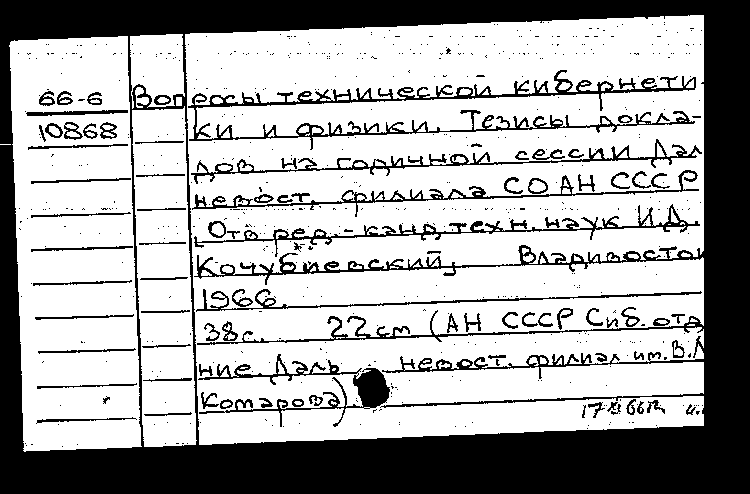 66-6 Вопросы технической кибернети-
10868 ки и физики. Тезисы докла-
дов на годичной сессии Дал
невост. филиала СО АН СССР
[Отв ред.-канд. техн. наук И.Д.
Кочубиевский] Владивосток
1966.
38с. 22см (АН СССР Сиб. отд
ние. Даль невост. филиал им. В.Л
Комарова)